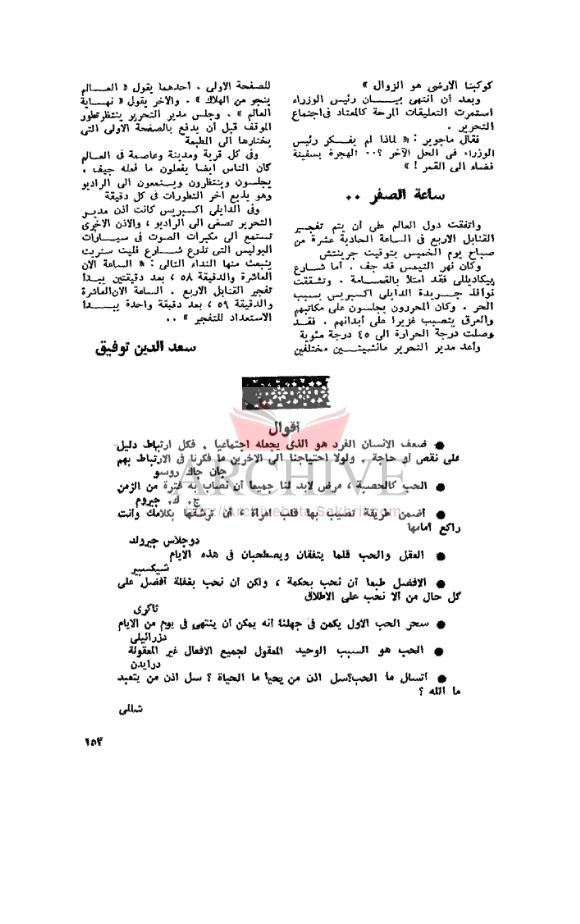 كوكبنا الارضى هو الزوال »
وبعد أن انتهى بيـــان رئيس الوزراء
استمرت التعليقات المرحة كالمعتاد فى اجتماع
التحرير .
فقال ماجوير : « لماذا لم يفــكر رئيس
الوزراء فى الحل الآخر ؟٠٠ الهجرة بسفينة
فضاء الى القمر ! »
ساعة الصفر ٠٠
واتفقت دول العالم على أن يتم تفجير
القنابل الاربع فى الساعة الحادية عشرة من
صباح يوم الخميس بتوقيت جرينتش
وكان نهر التيمس قد جف . أما شــارع
بيكاديللى فقد امتلأ بالقمــامة . وتشققت
نوافذ جــريدة الدايلى اكسبريس بسبب
الحر . وكان المحررون يجلسون على مكاتبهم
والعرق يتصبب غزيرا على أبدانهم . فقــد
وصلت درجة الحرارة الى ٤٥ درجة مئوية
وأعد مدير التحرير مانشيتــين مختلفين
للصفحة الاولى . أحدهما يقول « العــالم
ينجو من الهلاك » . والآخر يقول « نهــاية
العالم » . وجلس مدير التحرير ينتظر تطور
الموقف قبل أن يدفع بالصفحة الاولى التى
يختارها الى المطبعة
وفى كل قرية ومدينة وعاصمة فى العــالم
كان الناس أيضا يفعلون ما فعله جيف .
يجلسون وينتظرون ويستمعون الى الراديو
وهو يذيع آخر التطورات فى كل دقيقة
وفى الدايلى اكسبريس كانت أذن مديــر
التحرير تصغى الى الراديو ، والاذن الاخرى
تستمع الى مكبرات الصوت فى سيــارات
البوليس التى تذرع شــارع فليت ستريت
ينبعث منها النداء التالى : « الساعة الآن
العاشرة والدقيقة ٥٨ ، بعد دقيقتين يبــدأ
تفجير القنابل الاربع . الساعة الآن العاشرة
والدقيقة ٥٩ ، بعد دقيقة واحدة يبــــدأ
الاستعداد للتفجير » ٠٠
سعد الدين توفيق
أقوال
● ضعف الانسان الفرد هو الذى يجعله اجتماعيا . فكل ارتباط دليل
على نقص أو حاجة . ولولا احتياجنا الى الآخرين ما فكرنا فى الارتباط بهم
جان جاك روسو
● الحب كالحصبة ، مرض لابد لنا جميعا أن نصاب به فترة من الزمن
ج. ك. جيروم
● أضمن طريقة تصيب بها قلب امرأة ، أن ترشقها بكلامك وأنت
راكع أمامها
دوجلاس جيرولد
● العقل والحب قلما يتفقان ويصطحبان فى هذه الايام
شيكسبير
● الافضل طبعا أن نحب بحكمة ، ولكن أن نحب بغفلة أفضل على
كل حال من ألا نحب على الاطلاق
ثاكرى
● سحر الحب الاول يكمن فى جهلنا أنه يمكن أن ينتهى فى يوم من الايام
دزرائيلى
● الحب هو السبب الوحيد المعقول لجميع الافعال غير المعقولة
درايدن
● أتسأل ما الحب؟ سل اذن من يحيا ما الحياة ؟ سل اذن من يتعبد
ما الله ؟
شللى
١٥٣
ARCHIVE
http://Archivebeta.Sakhrit.com